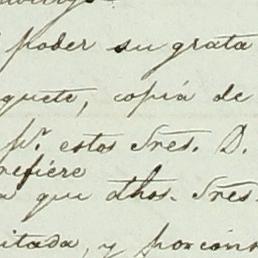 poder su grata
quete, copia de
pr. estos Sres. D.
refiére
a que dhos. Sres.
itada, y porcons